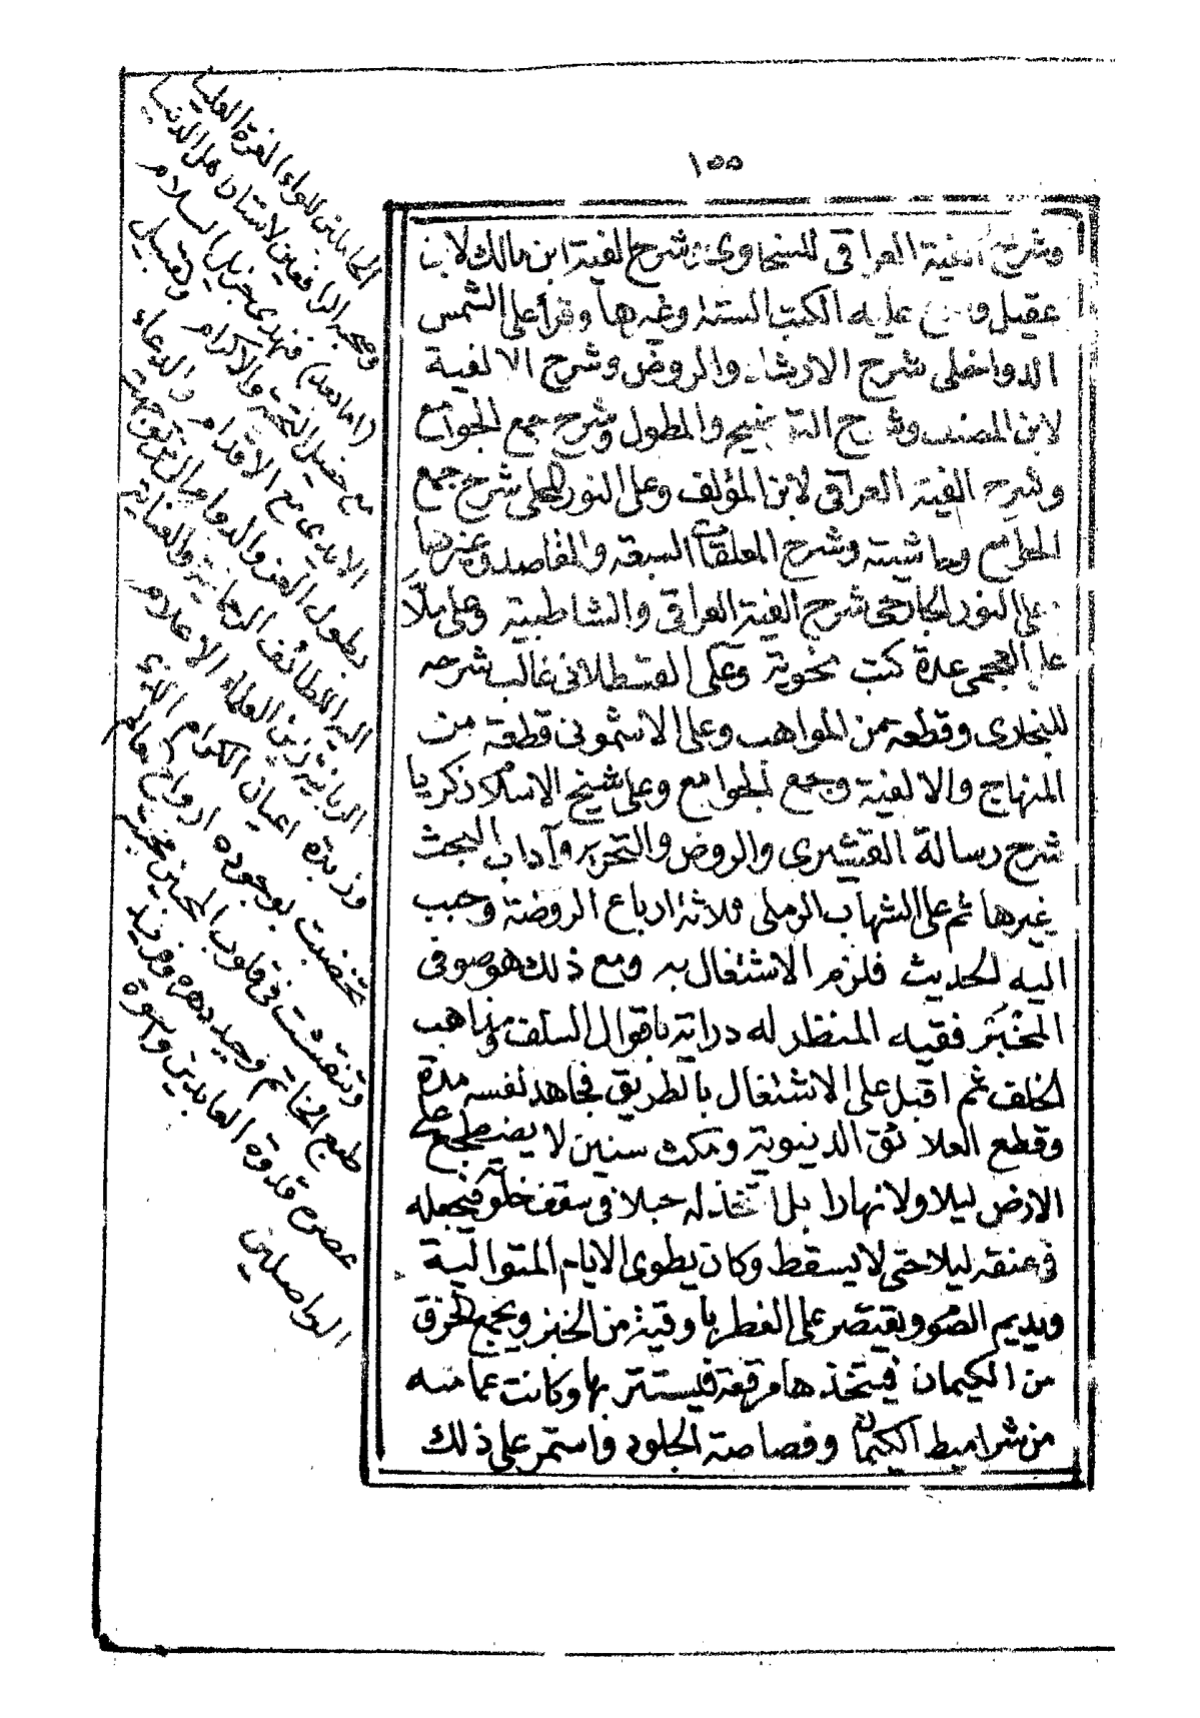 ١٥٥
وشرح الفية العراقي للسخاوى وشرح الفية ابن مالك لابن
عقيل و عليه الكتب الستة وغيرها وقرأ على الشمس
الدواخلى شرح الارشاد والروض وشرح الالفية
لابن المصنف وشرح التوضيح والمطول وشرح جمع الجوامع
وشرح الفية العراقى لابن المؤلف وعلى النور المحلى شرح جمع
الجوامع وحاشيته وشرح المعلقات السبعه والمقاصد وغيرها
على النور الجارحى شرح الفية العراقى والشاطبية وعلى ملّا
على العجمى عدة كتب نحوية وعلى القسطلانى غالب شرحه
للبخارى وقطعه من المواهب وعلى الاشمونى قطعة من
المنهاج والالفية وجمع الجوامع وعلى شيخ الاسلام زكريا
شرح رسالة القشيرى والروض والتحرير وآداب البحث
غيرها ثم على الشهاب الرملى ثلاثة ارباع الروضة وحبب
اليه الحديث فلزم الاشتغال به ومع ذلك هو صوفى
المخبَر فقيه المنظر له دراية باقوال السلف ومذاهب
الخلف ثم اقبل على الاشتغال بالطريق فجاهد نفسه مدة
وقطع العلائق الدنيوية ومكث سنين لا يضطجع على
الارض ليلا ولا نهارا بل اتخذ له حبلا فى سقف خلوته فيجعله
فى عنقه ليلا حتى لا يسقط وكان يطوى الايام المتوالية
ويديم الصوم ويقتصر على الفطر باوقية من الخبز ويجمع الخرق
من الكيمان فيتخذها مرقعة فيستتر بها وكانت عمامته
من شراميط الكيمان وقصاصة الجلود واستمر على ذلك
الحاملين للواء الغرة العليا
وعجه الرافعين لاستار هل الدنيا
(اما بعد) فنهدى جزيل السلام
مع جميل التحية والاكرام وتقبيل
الايدى مع الاقدام والدعاء
بطول العز والدوام
اليه اللطائف الرحمانية والعناية
الربانية زين العلماء الاعلام
وزبدة اعيان الكرام الذى
تحضنت بوجوده ارواح العالم
وتنقشت فى قلوب المحبين محبته
طبع الخاتم وحيد دهره وفريد
عصره قدوة العابدين واسوة
الواصلين